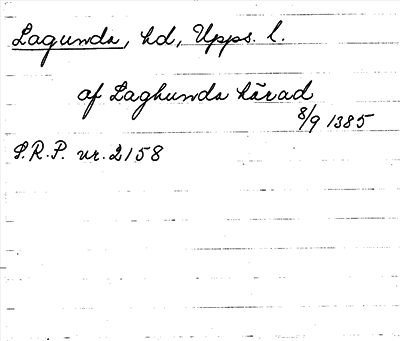 Lagunda, hd, Upps. l.
af Laghunda härad
8/9 1385
S.R.P. nr. 2158